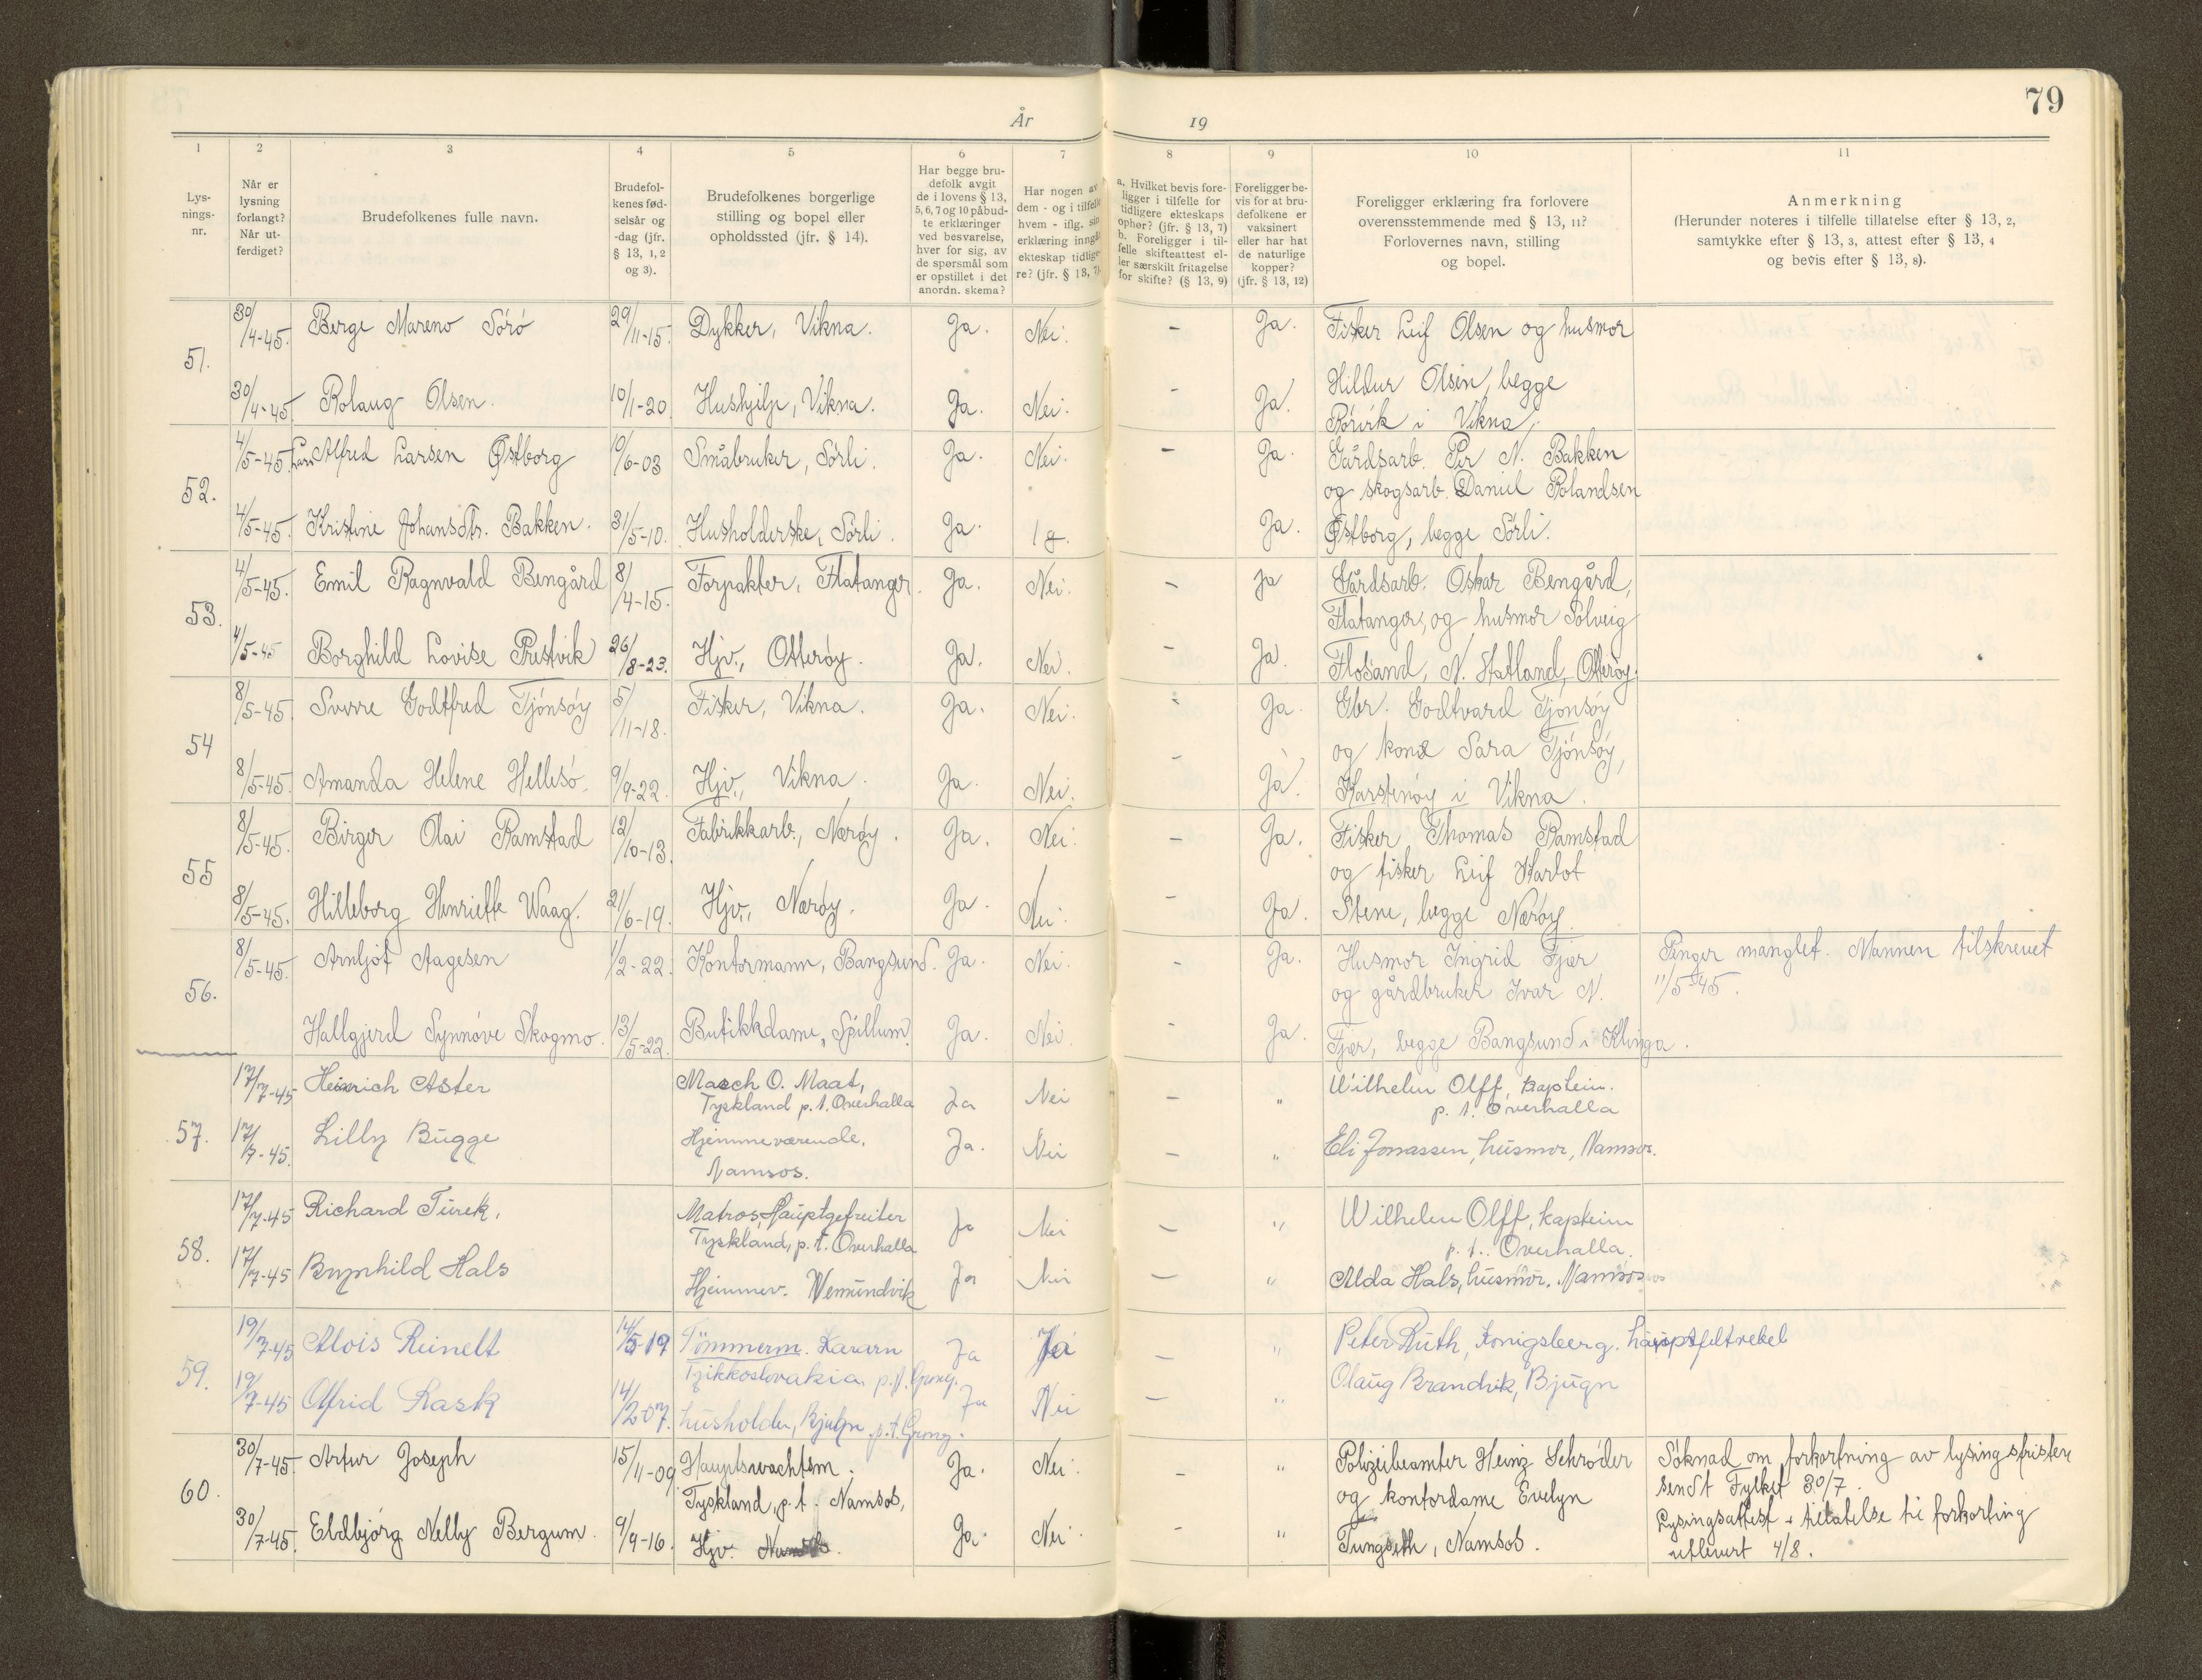 År 19
79
1 2 3 4 5 6 7 8 9 10 11
Lys-
nings-
nr.
Når er
lysning
forlangt?
Når ut-
ferdiget?
Brudefolkenes fulle navn.
Brudefol-
kenes fød-
selsår og
-dag (jfr.
§ 13, 1, 2
og 3).
Brudefolkenes borgerlige
stilling og bopel eller
opholdssted (jfr. § 14).
Har begge bru-
defolk avgit
de i lovens § 13,
5, 6, 7 og 10 påbud-
te erklæringer
ved besvarelse,
hver for sig, av
de spørsmål som
er opstillet i det
anordn. skema?
Har nogen av
dem - og i tilfelle
hvem - iflg. sin
erklæring inngått
ekteskap tidlige-
re? (jfr. § 13, 7).
a. Hvilket bevis fore-
ligger i tilfelle for
tidligere ekteskaps
ophør? (jfr. § 13, 7)
b. Foreligger i til-
felle skifteattest el-
ler særskilt fritagelse
for skifte? (§ 13, 9)
Foreligger be-
vis for at bru-
defolkene er
vaksinert
eller har hat
de naturlige
kopper?
(jfr. § 13, 12)
Foreligger erklæring fra forlovere
overensstemmende med § 13, 11?
Forlovernes navn, stilling
og bopel.
Anmerkning
(Herunder noteres i tilfelle tillatelse efter § 13, 2,
samtykke efter § 13, 3, attest efter § 13, 4
og bevis efter § 13, 8).
51.
30/4-45. Berge Mareno Sörö 29/11-15. Dykker, Vikna. Ja. Nei. - Ja. Fisker Leif Olsen og husmor
30/4-45 Rolaug Olsen. 10/1-20. Hushjelp, Vikna. Ja. Nei. - Ja. Hildur Olsen, begge
Rörvik i Vikna.
52.
4/5-45. Lars Alfred Larsen Østborg 10/6-03 Småbruker, Sörli. Ja. Nei. - Ja. Gårdsarb. Per N. Bakken
og skogsarb. Daniel Rolandsen
4/5-45. Kristine Johansdtr. Bakken. 31/5-10. Husholderske, Sörli. Ja. 1 g. Ja. Østborg, begge Sörli.
53.
4/5-45. Emil Ragnvald Bengård 8/4-15. Forpakter, Flatanger. Ja. Nei. - Ja Gårdsarb. Oskar Bengård,
Flatanger, og husmor Solveig
4/5-45 Borghild Lovise Prestvik 26/8-23. Hjv., Otterøy. Ja. Nei. - Ja. Flosand, N. Statland, Otterøy.
54
8/5-45. Sverre Godtfred Tjönsöy 5/11-18. Fisker, Vikna. Ja. Nei. - Ja. Gbr. Godtvard Tjönsöy
og kone Sara Tjönsöy,
8/5-45. Amanda Helene Hellesö. 9/9-22. Hjv., Vikna. Ja. Nei. - Ja. Karstenöy i Vikna.
55
8/5-45. Birger Olai Ramstad 12/10-13. Fabrikkarb., Nærøy. Ja. Nei. - Ja. Fisker Thomas Ramstad
og fisker Leif Karlot
8/5-45. Hilleborg Henriette Waag. 21/6-19. Hjv., Nærøy. Ja. Nei. - Ja. Stene, begge Nærøy.
56.
8/5-45. Arnljot Aagesen 1/2-22. Kontormann, Bangsund. Ja. Nei. - Ja. Husmor Ingrid Fjær Penger manglet. Mannen tilskrevet
og gårdbruker Ivar N. 11/5-45.
Hallgjerd Synnöve Skogmo. 13/5-22. Butikkdame, Spillum. Ja. Nei. - Ja. Fjær, begge Bangsund i Klinga.
57.
17/7-45 Heinrich Aster Masch O. Maat, Ja Nei " Wilhelm Olff, kaptein.
Tyskland p.t. Overhalla p.t. Overhalla
17/7-45. Lilly Bugge Hjemmeværende, Ja. Nei - " Eli Jonassen, husmor, Namsos.
Namsos.
58.
17/7-45 Richard Turek. Matros Hauptgefreiter Ja Nei - " Wilhelm Olff, kaptein
Tyskland, p.t. Overhalla p.t. Overhalla.
17/7-45 Brynhild Hals Hjemmev. Vemundvik Ja Nei - " Alda Hals, husmor. Namsos
59.
19/7-45 Alois Reinelt 14/5-19 Tömmerm. Ja - " Peter Ruth, Konigsberg. hauptfeltvebel
Tsjikkoslovakia, p.t. Grong.
19/7-45 Olfrid Rask 14/2-07. husholder, Bjugn p.t. Grong. Ja Nei - " Olaug Brandvik, Bjugn
60.
30/7-45. Artur Joseph 15/11-09 Hauptswachtsm. Ja. Nei. - " Polizeibeamter Heinz Schröder Söknad om forkortning av lysingsfristen
Tyskland, p.t. Namsos, og kontordame Evelyn sendt Fylket 30/7.
30/7-45. Eldbjörg Nelly Bergum. 9/9-16. Hjv. Ja. Nei. - " Tungseth, Namsos. Lysingsattest + tillatelse til forkorting
utlevert 4/8.